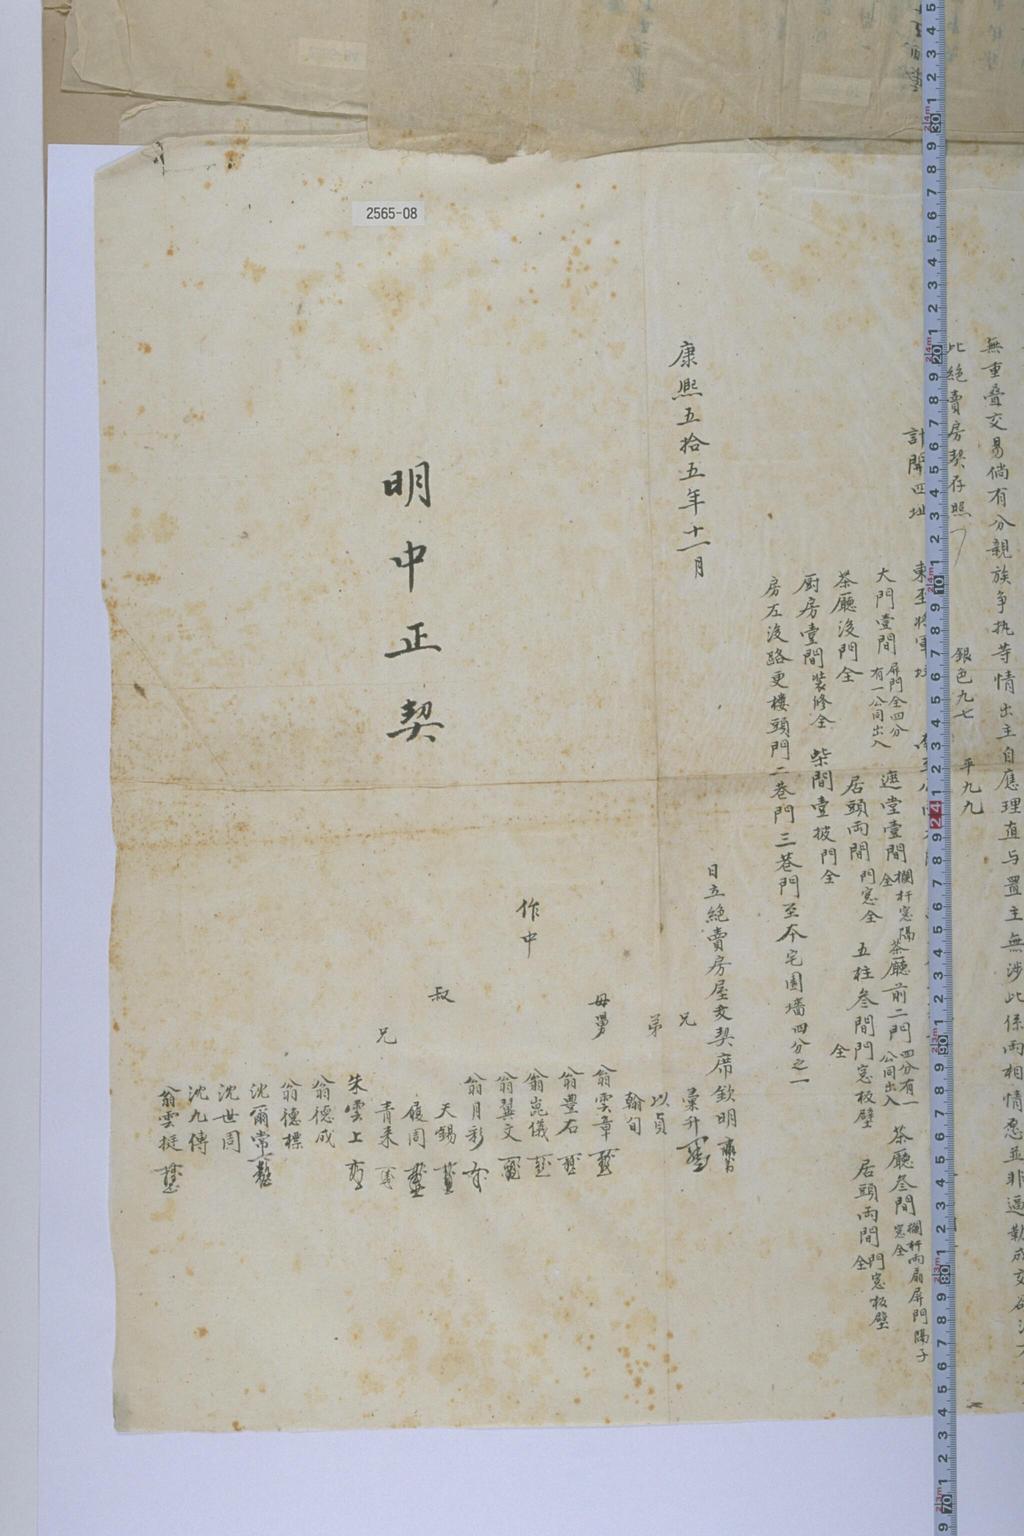 無重叠交易倘有分親族争执等情出主自應理直与置主無涉此係両相情愿並非逼勒成交
此絶賣房契存照 銀色九七 平九九
計開四址
東至将軍
大門壹間 屏門全四分有一公同出入 進堂壹間 欄杆窓隔全 茶廳前二門 四分有一公同出入 茶廳叁間 欄杆両扇屏門隔子窓全
茶廳後門全 居頭両間 門窓全 五柱叁間門窓板壁全 居頭両間 門窓板壁全
厨房壹間装修全 柴間壹披門全
房左後路更樓頭門二巷門三巷門至本宅圍墻四分之一
康熙五拾五年十一月 日立絶賣房屋文契席欽明
兄 彙升
弟 以貞
翰旬
母舅 翁雲章
翁豊石
翁崑儀
作中 翁翼文
翁月彩
叔 天錫
履周
兄 青来
朱雲上
翁德成
翁德標
沈爾常
沈世周
沈九傳
翁雲挺
明中正契
2565-08